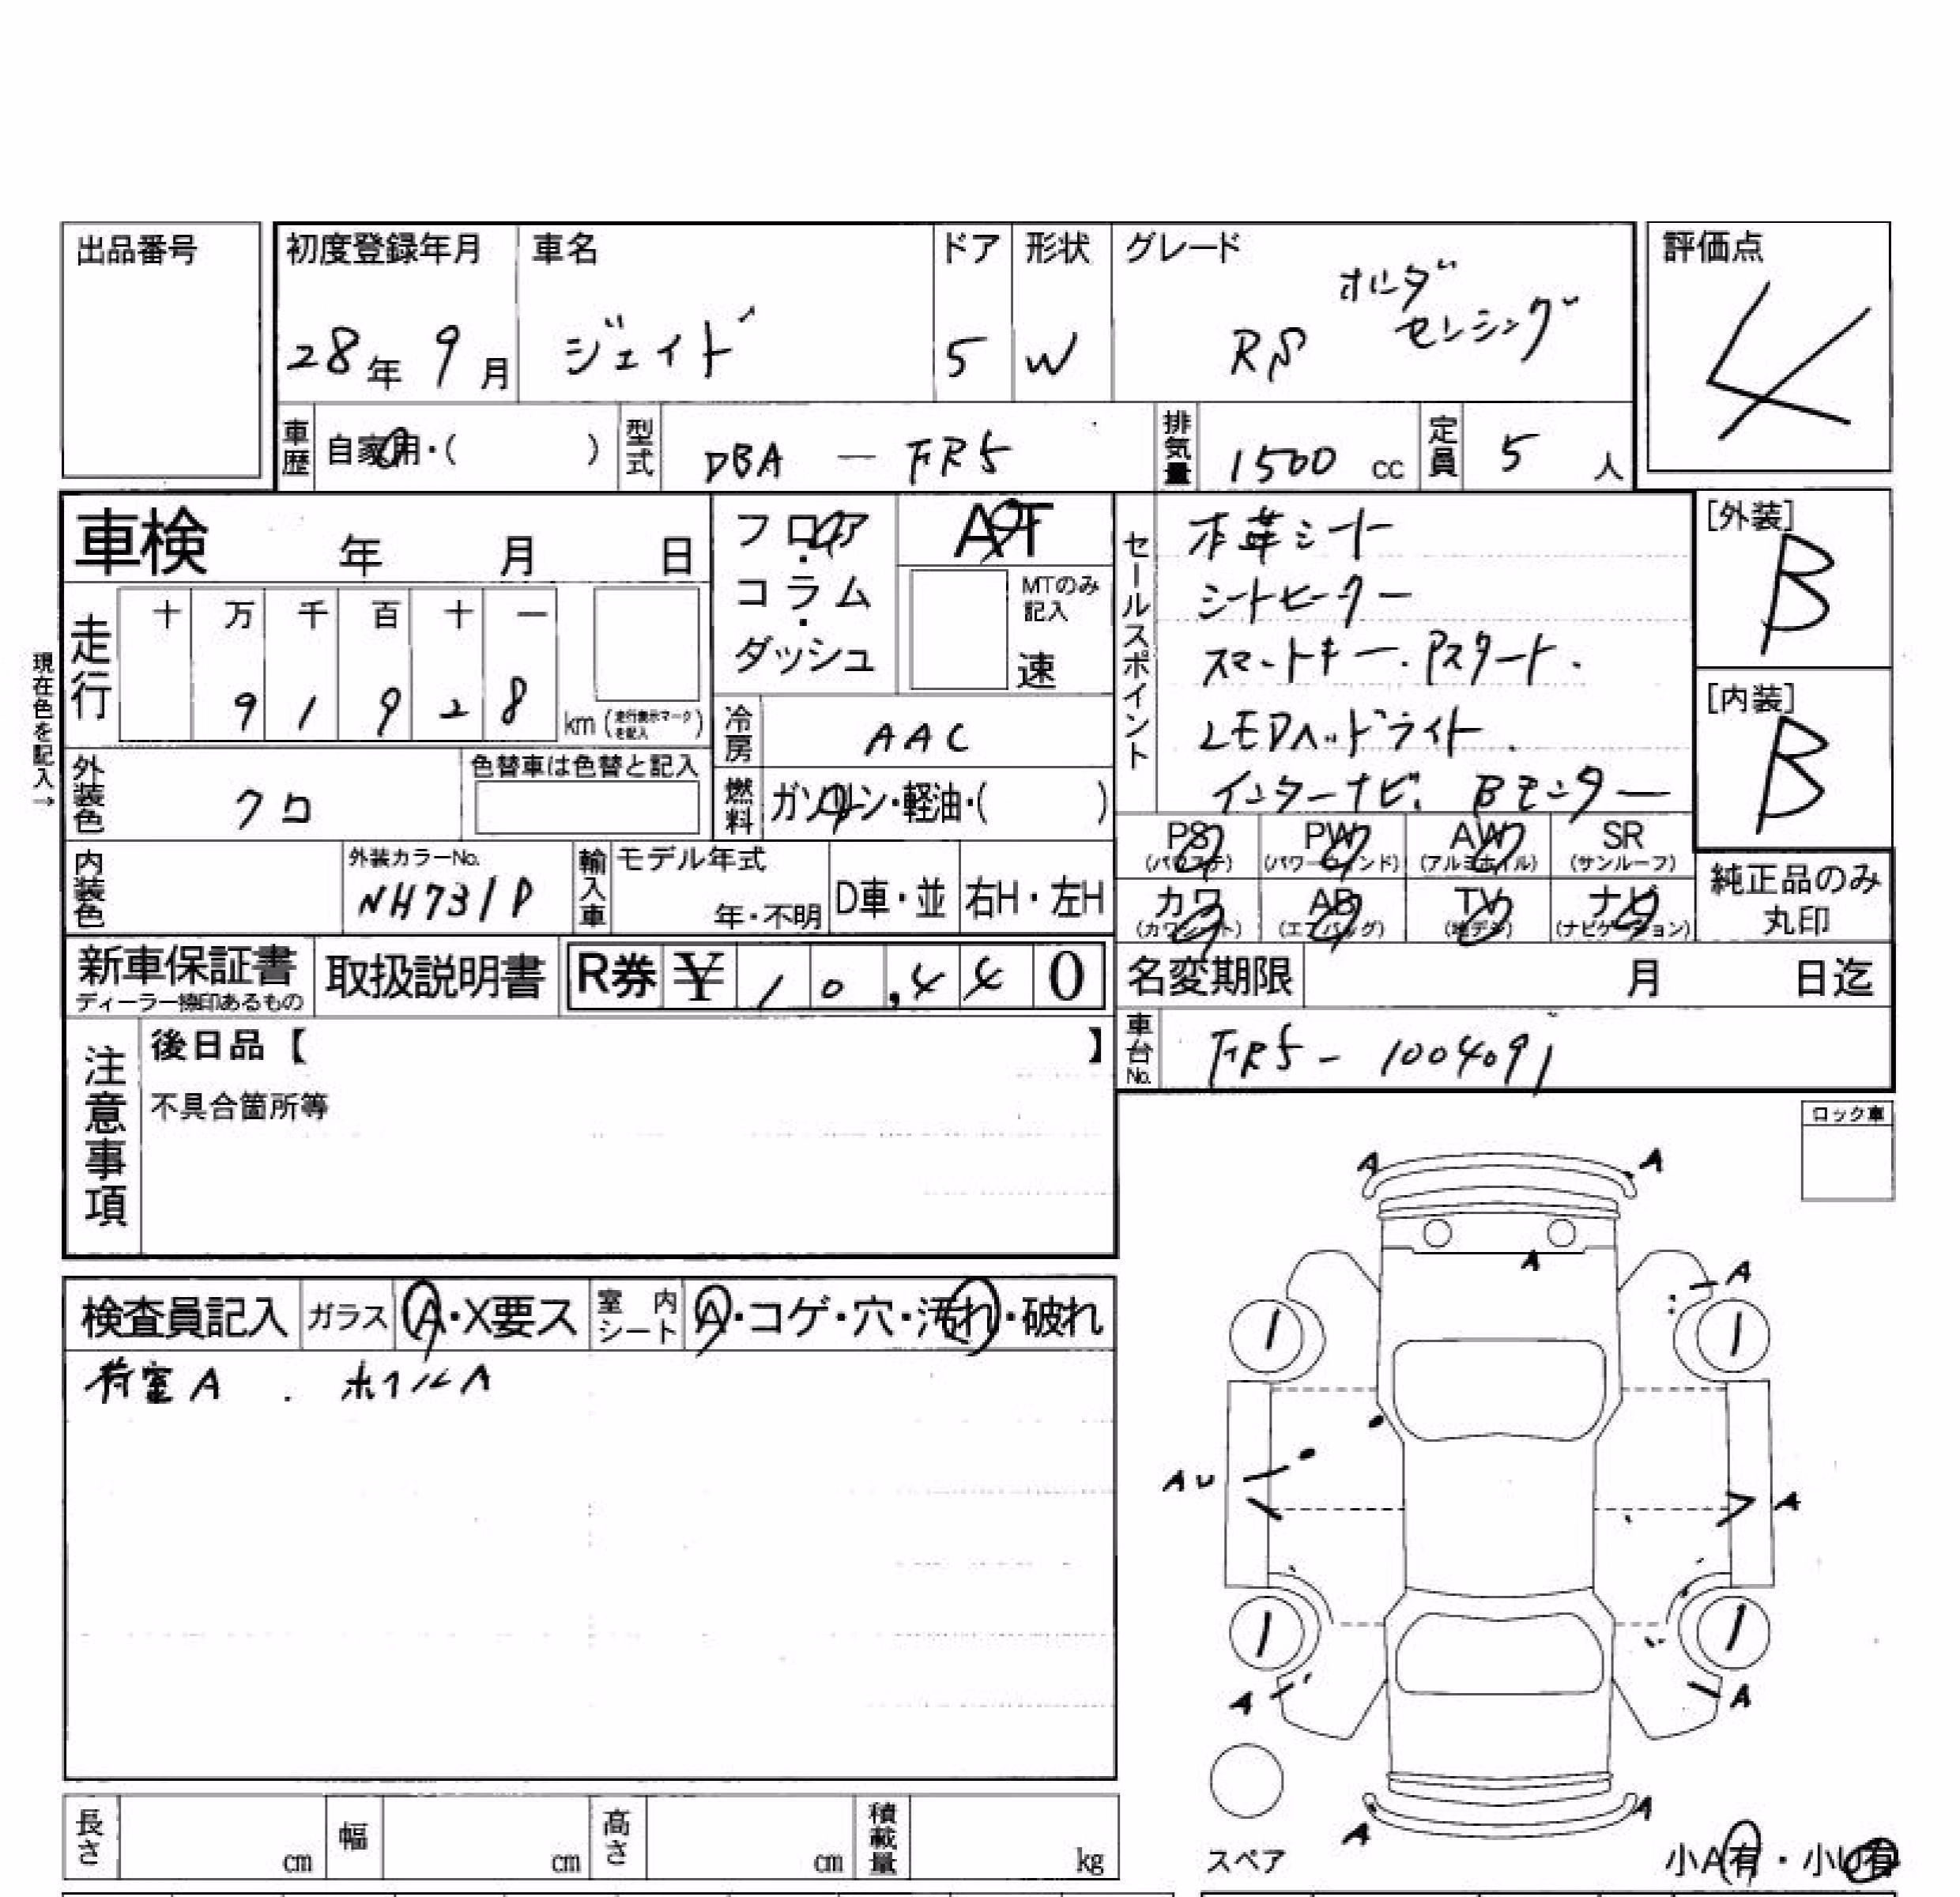 出品番号
初度登録年月 車名 ドア 形状 グレード 評価点
28年 9月 ジェイド 5 W RS ホンダ センシング 4
車歴 自家用・( ) 型式 DBA - FR5 排気量 1500 cc 定員 5 人
車検 年 月 日
フロア・コラム・ダッシュ
AT
MTのみ記入
速
走行 十 万 千 百 十 一
9 1 9 2 8 km (走行表示マークを記入)
現在色を記入→
外装色 クロ 色替車は色替と記入
冷房 AAC
燃料 ガソリン・軽油・( )
セールスポイント
本革シート
シートヒーター
スマートキー. Pスタート.
LEDヘッドライト.
インターナビ. Bモニター
[外装] B
[内装] B
内装色 外装カラーNo. NH731P 輸入車 モデル年式 年・不明 D車・並 右H・左H
PS (パワステ) PW (パワーウィンド) AW (アルミホイル) SR (サンルーフ)
カワ (カワシート) AB (エアバッグ) TV (地デジ) ナビ (ナビゲーション)
純正品のみ丸印
新車保証書 ディーラー捺印あるもの 取扱説明書 R券 ¥ 10,440
名変期限 月 日迄
車台No. FR5 - 1004091
注意事項
後日品【 】
不具合箇所等
ロック車
検査員記入 ガラス A・X要ス 室内シート A・コゲ・穴・汚れ・破れ
荷室A . ホイルA
A A
A
A
1 1
AU A
1 1
A A
A A
スペア
小A有・小U有
長さ cm 幅 cm 高さ cm 積載量 kg